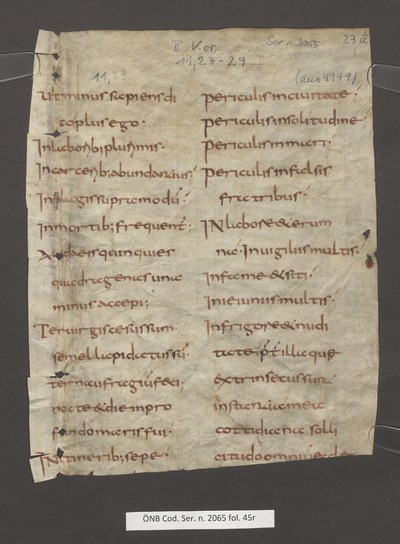 II Kor.
11,23-29
Ser. n. 2065
23 a
(aus 4949)
11,23
Ut minus sapiens di
co plus ego.
In laborib; plurimis.
In carcerib; abundantius.
In plagis supra modū.
In mortib; frequent̄.
A iudaeis quinquies
quadragenas unā
minus accepi;
Ter uirgis caesus sum.
semel lapidatus sū.
ter naufragiū feci;
nocte & die in pro
fundo maris fui.
IN itinerib; sepe.
periculis in ciuitate.
periculis in solitudine.
periculis in mari.
periculis in falsis
fratribus.
IN labore & aerum
na. In uigiliis multis.
In fame & siti.
In ieiuniis multis.
In frigore & nudi
tate. p̄t illa quae
extrinsecus sunt.
instantia mea
cottidiana solli
citudo omniū
ÖNB Cod. Ser. n. 2065 fol. 45r